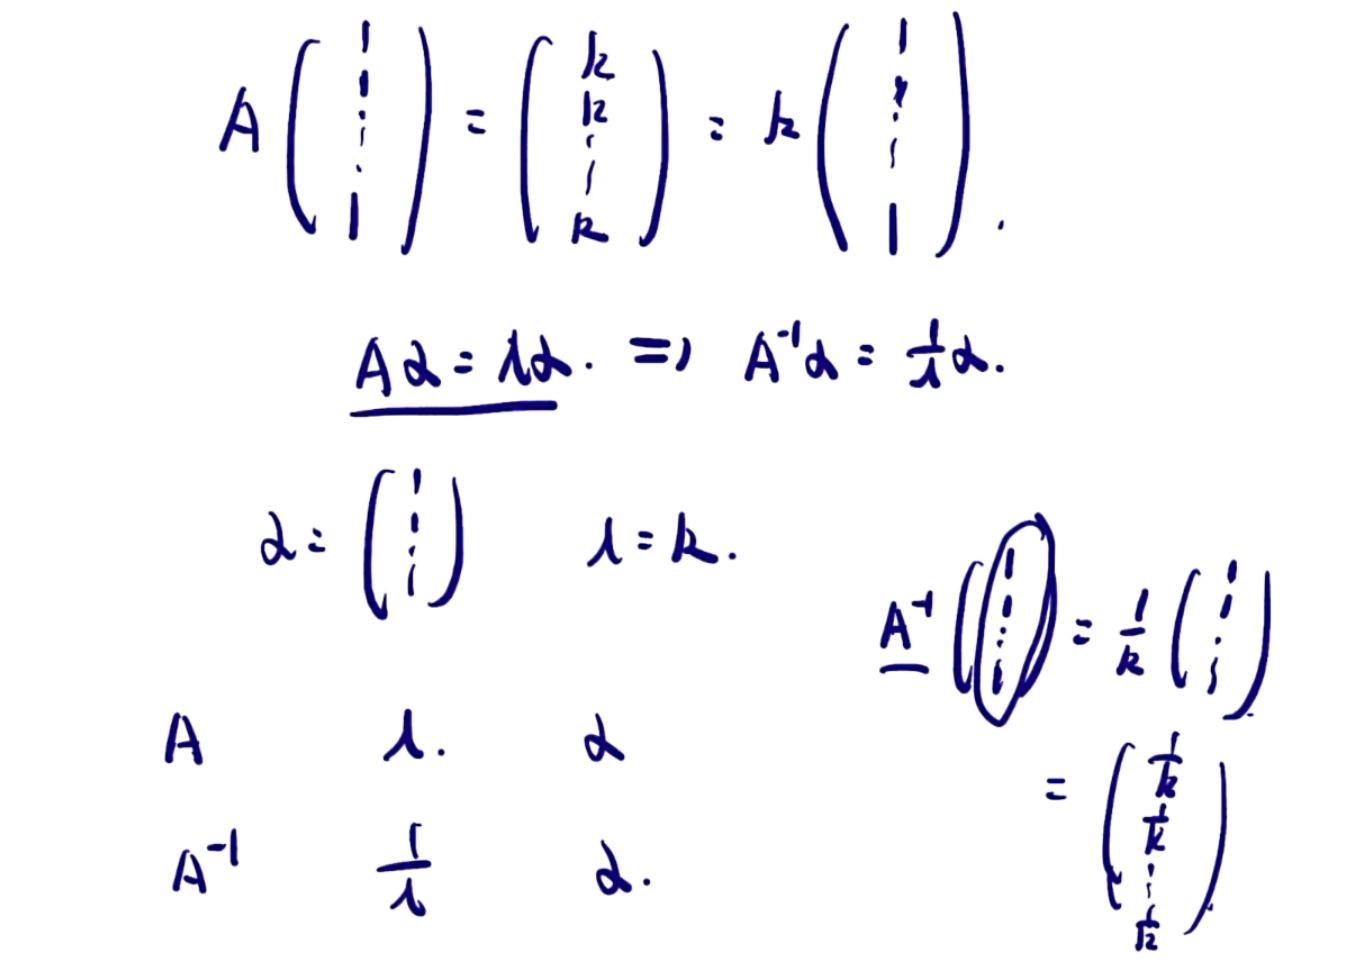 A(1 1 ⋮ 1) = (k k ⋮ k) = k(1 1 ⋮ 1).
Aα = λα. ⇒ A⁻¹α = 1/λ α.
α = (1 1 ⋮ 1) λ = k.
A⁻¹(1 1 ⋮ 1) = 1/k (1 1 ⋮ 1)
= (1/k 1/k ⋮ 1/k)
A λ. α
A⁻¹ 1/λ α.